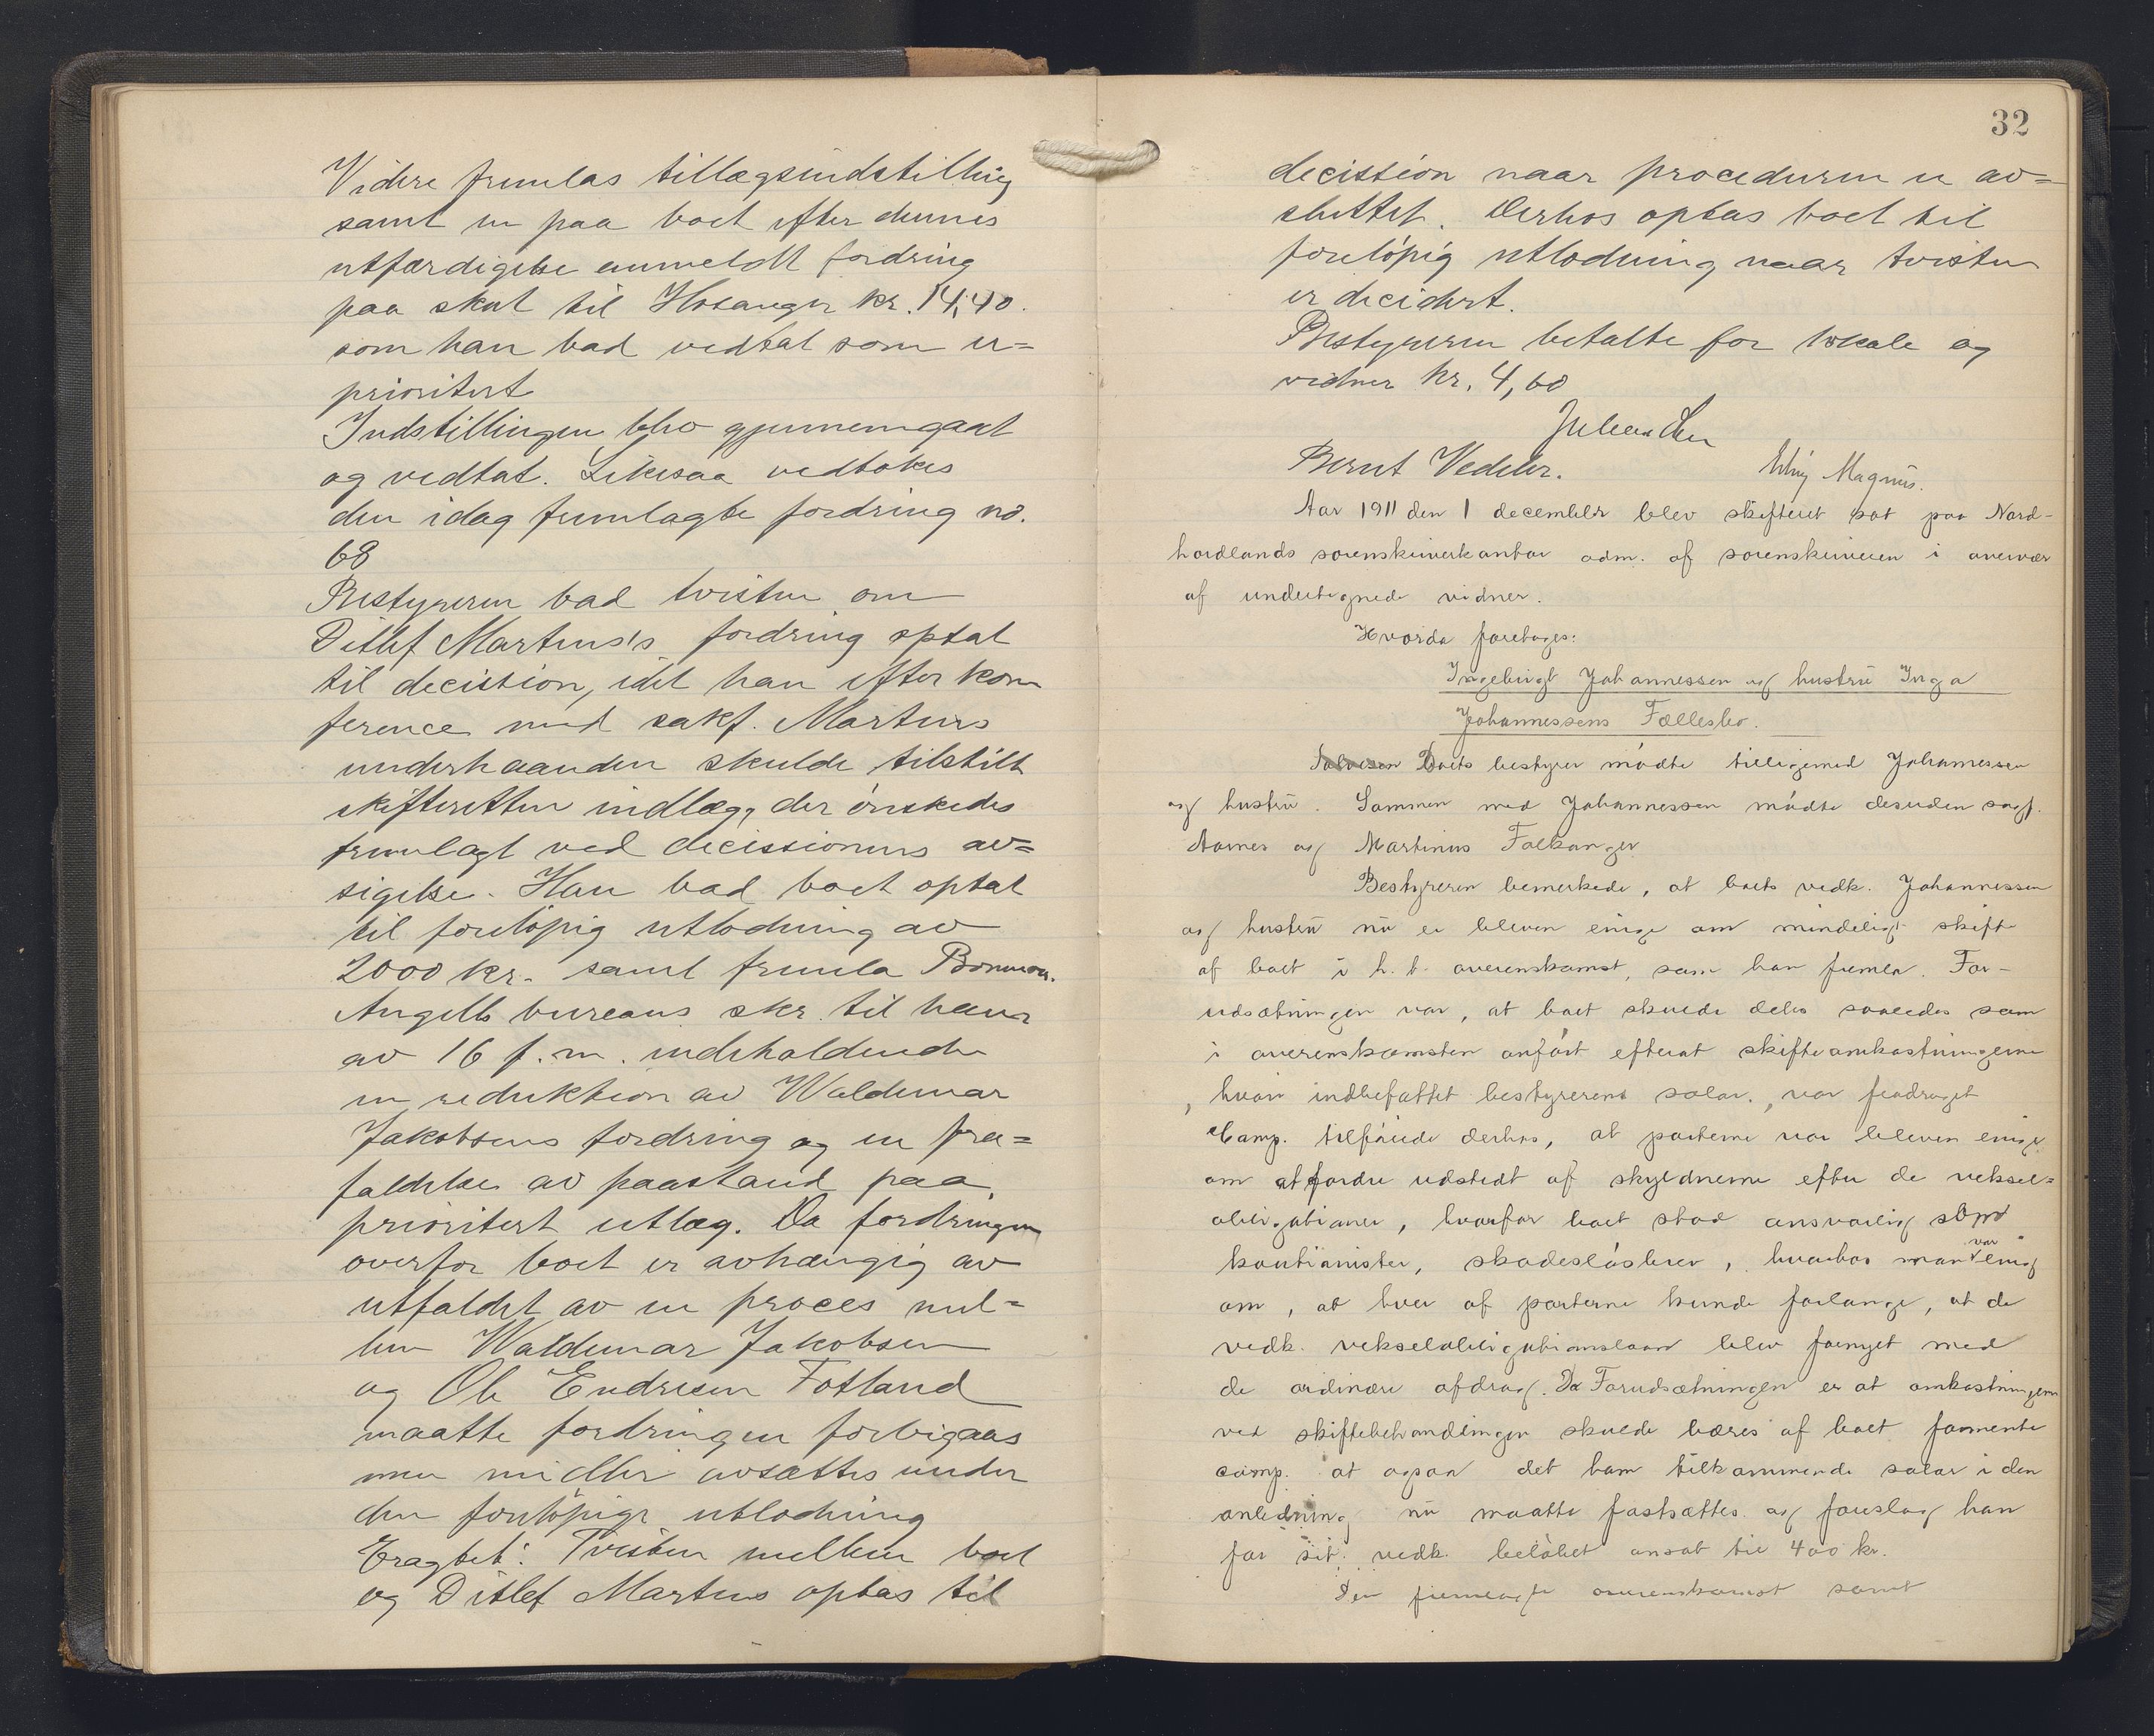 Videre fremlas tillægsindstilling
samt en paa boet efter dennes
utfærdigelse anmeldt fordring
paa skat til Hosanger kr. 14,40.
som han bad vedtat som u=
prioritert
Indstillingen blev gjennemgaat
og vedtat. Likesaa vedtokes
den idag fremlagte fordring no.
68
Bestyreren bad tvisten om
Ditlef Martens's fordring optat
til decision, idet han efter kon
ference med sakf. Martens
underhaanden skulde tilstilt
skifteretten indlæg, der ønskedes
fremlagt ved decissionens av=
sigelse. Han bad boet optat
til foreløpig utlodning av
2000 kr. samt fremla
Angells bureaus skr. til ham
av 16 f.m. indeholdende
en reduktion av Waldemar
Jakobsens fordring og en fra=
faldelse av paastand paa
prioritert utlæg. Da fordringen
overfor boet er avhængig av
utfaldet av en proces mel=
lem Waldemar Jakobsen
og Ole Endresen Fotland
maatte fordringen forbigaas
men midler avsættes under
den foreløpige utlodning
Eragtet: Tvisten mellem boet
og Ditlef Martens optas til
32
decission naar proceduren er av=
sluttet. Derhos optas boet til
foreløpig utlodning naar tvisten
er decidert.
Bestyreren betalte for lokale og
vidner kr. 4,60
Bernt Vedeler. Erling Magnus.
Aar 1911 den 1 december blev skifteret sat paa Nord-
hordlands sorenskriverkontor adm. af sorenskriveren i overvær
af undertegnede vidner.
Hvorda foretoges:
Ingebrigt Johannessen og hustru Inga
Johannessens Fællesbo.
Boets bestyrer mødte tilligemed Johannessen
og hustru. Sammen med Johannessen mødte desuden sagf.
Aarnes og Martinus Falkanger
Bestyreren bemerkede, at boets vedk. Johannessen
og hustru nu er bleven enige om mindeligt skifte
af boet i h. t. overenskomst, som han fremla. For-
udsætningen var, at boet skulde deles saaledes som
i overenskomsten anført efterat skifteomkostningerne
, hvori indbefattet bestyrerens salær, var fradraget
Comp. tilføiede derhos, at parterne var bleven enige
om at fordre udstedt af skyldnerne efter de veksel=
obligationer, hvorfor boet stod ansvarlig som
kautionister, skadesløsbrev, hvorhos man var enig
om, at hver af parterne kunde forlange, at de
vedk. vekselobligationslaan blev fornyet med
de ordinære afdrag. Da Forudsætningen er at omkostningerne
ved skiftebehandlingen skulde bæres af boet formente
comp. at ogsaa det ham tilkommende salær i den
anledning nu maatte fastsættes og foreslog han
for sit vedk. beløbet ansat til 400 kr.
Den fremlagte overenskomst samt